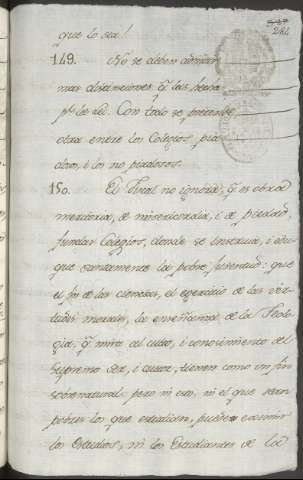 284
que lo sea!
149. No se deben
mar distinciones q. las
p. las Con todo se pretende
otra entre los Colegios, pia
dosos, i los no piadosos.
150. El Fiscal no ignora, q. es obra
meritoria, de misericordia, i de piedad,
fundar Colegios, donde se instrua, i edu
que santamente la pobre juventud: que
el fin de las ciencias, el exercicio de las vir
tudes morales, la enseñanza de la Teolo
gia, q. mira al culto, i conocimiento del
Supremo Ser, i Autor, tienen como un fin
sobrenatural: pero ni eso, ni el que sean
pobres los que estudien, puede eximir
los Estudios, ni los Estudiantes de la